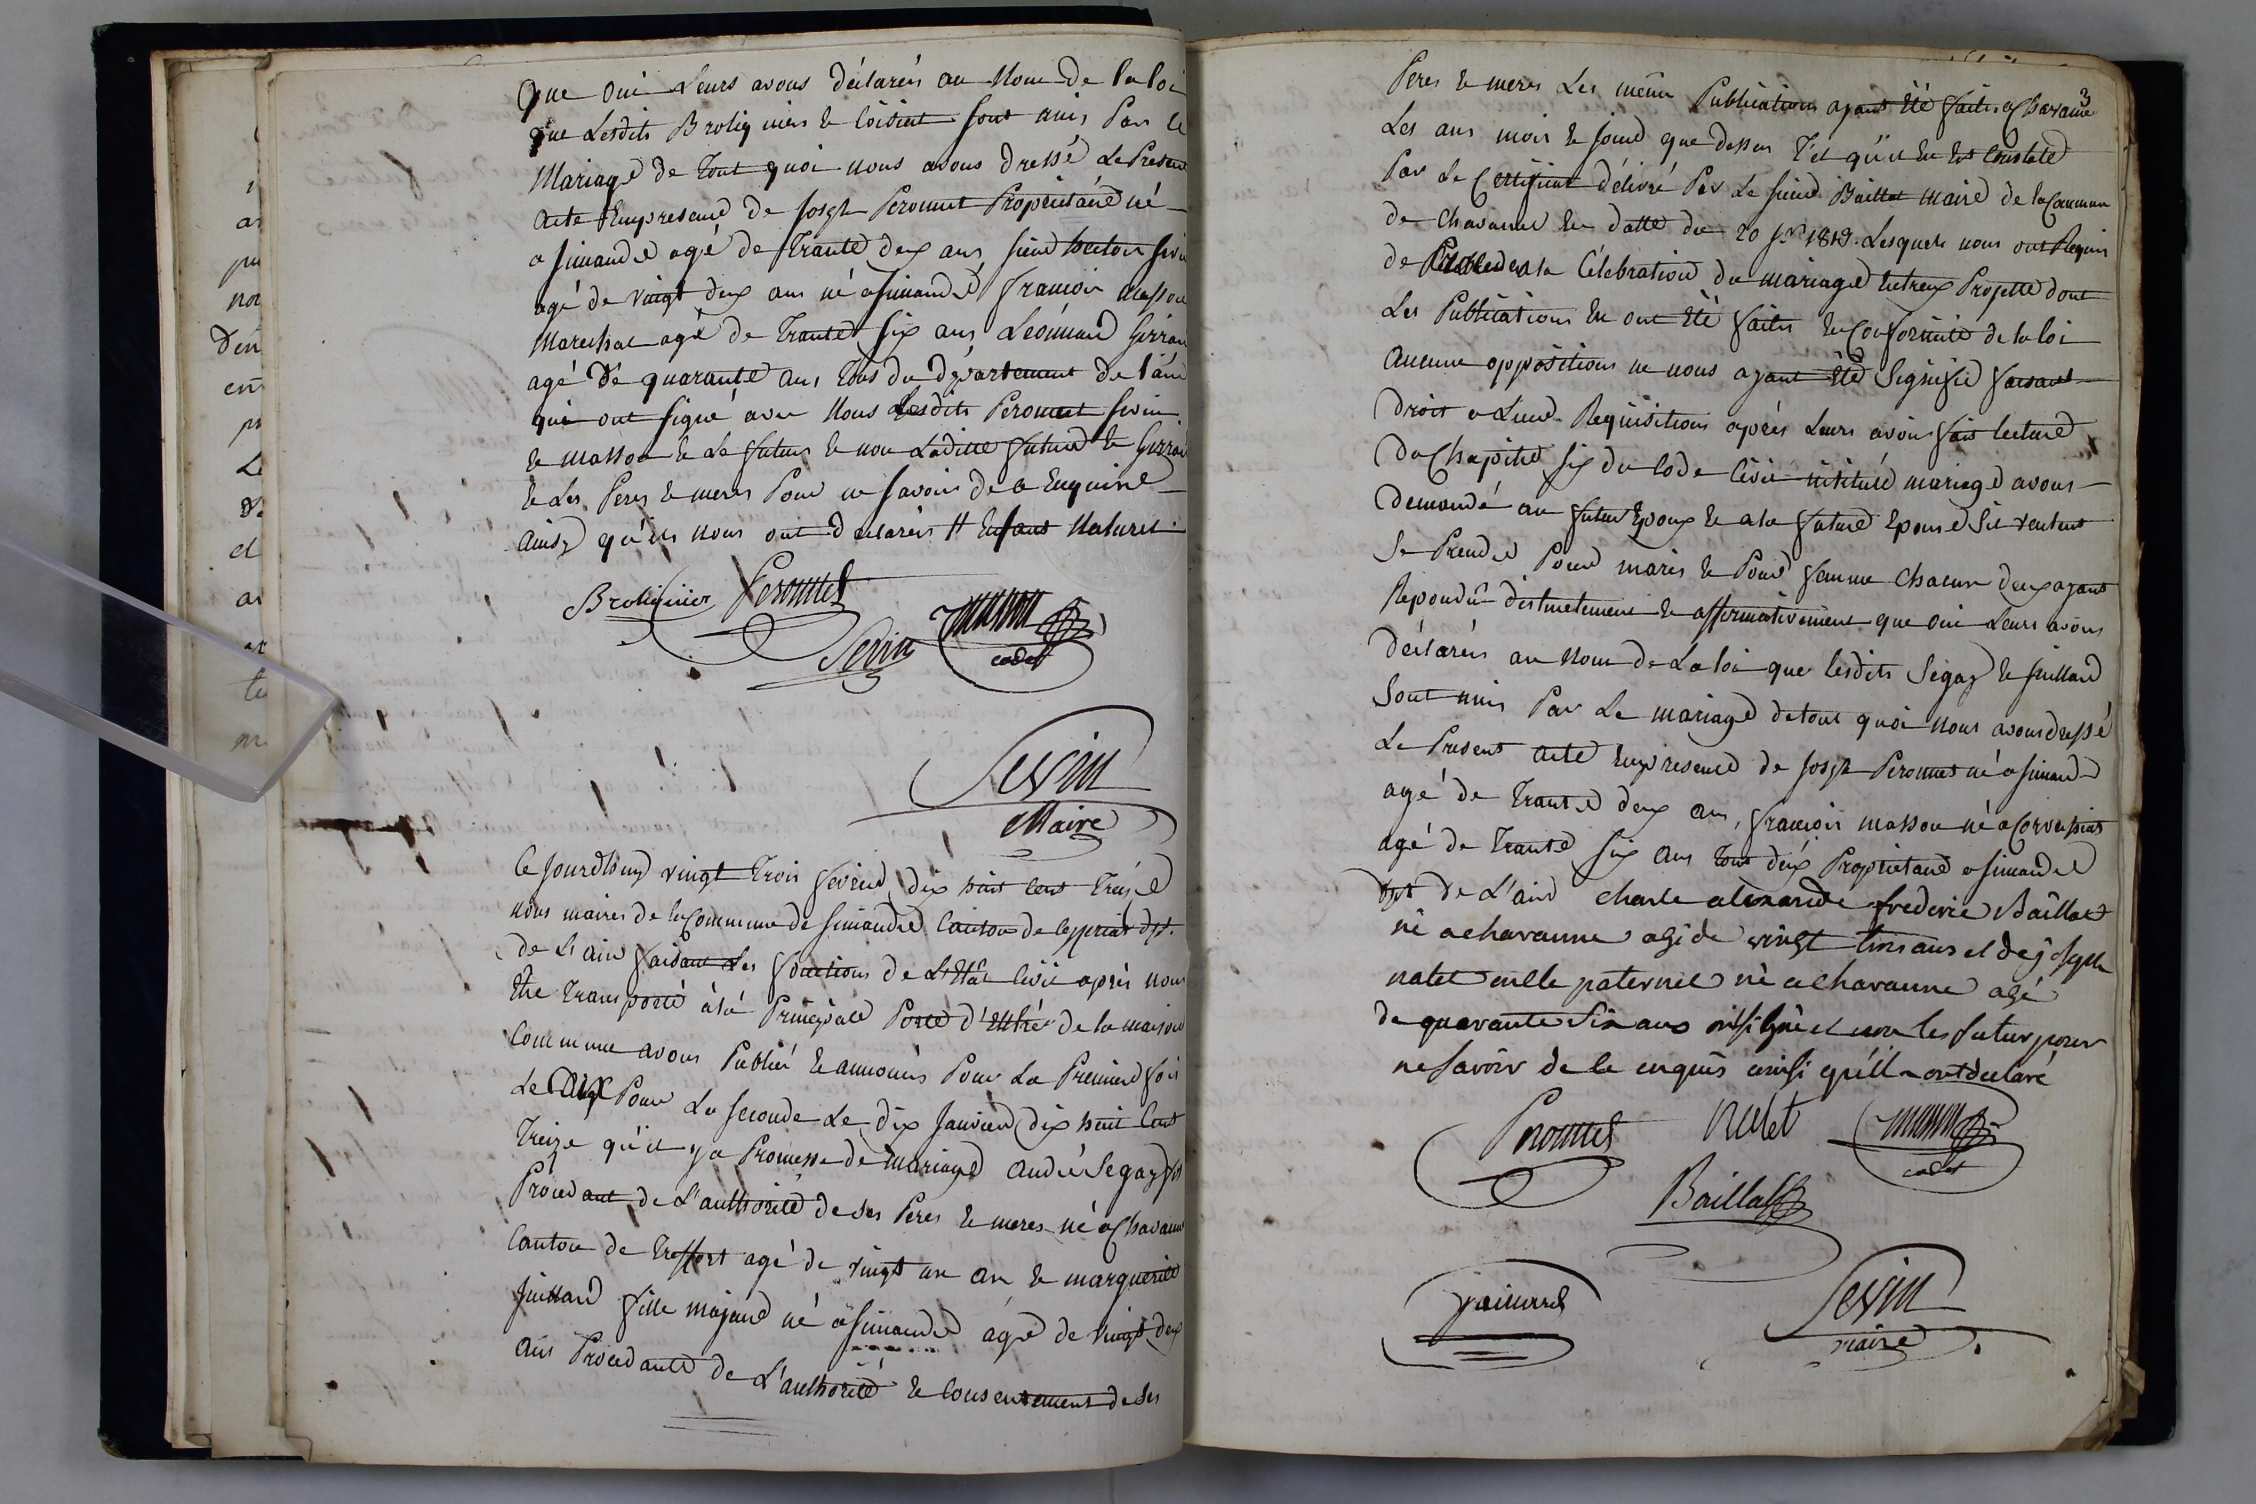 Que oui Leurs avons déclarés au Nom de la loi
que Lesdits Broliquier & Loisiat sont unis Par le
Mariage de tout quoi nous avons dressé Le Present
acte Enpresence de Joseph Peronnet Propriétaire né
a Simandre agé de Trante deux ans, Sevin
agé de vingt deux ans né a Simandre, francois Masson
Marechal agé de Trante six ans Léonnard
agé de quarante ans, tous du département de l'ain
qui ont signé avec Nous Lesdits Peronnet Sevin
& Masson & Le futur & non Laditte future &
& Les Peres & meres Pour ne savoir de ce Enquire
ainsy qu'ils nous ont declarées # Enfans Naturel
Broliquier Peronnet
Sevin masson
cadet
Sevin
Maire
Ce Jourdhuy vingt Trois fevrier dix huit cent Treize
nous maires de la Commune de Simandre Canton de Ceyzeriat dpt.
de L'ain faisant Les fonctions de L'Etât Civil après nous
Etre Transporté à la Principale Porte d'Entrée de la maison
Commune avons Publiér & annoncés Pour La Premiere fois
Le Pour La seconde Le dix Janvier dix huit Cent
Treize qu'il y a Promesse de Mariage André Segaz fils
Procedant de L'authorité de ses Peres & meres né a Chavanne
Canton de Treffort agé de vingt un an & marguerite
Juillard fille majeure né a Simandre agé de vingt deux
ans Procedante de L'authorité & Consentement de ses
3
Peres & meres Les même Publications ayant Été faites a Chavanne
Les ans mois & Jours que dessus T'el qu'il En Est Constaté
Par Le Certificat délivré Par Le sieur Baillat Maire de la Commune
de Chavanne En datte du 20 1813. Lesquels nous ont Requis
de Proceder a la Célébration du mariage Entreux Projetté dont
Les Publications En ont Été faites En Conformité de la loi
Aucune oppositions ne nous ayant Eté Signifié faisant
Droit a Leurs Requisitions aprés Leurs avoir fais lecture
Du Chapitre six du Code Civil intitulé mariage avons
demandé au futur Epoux & a la future Epouse Sil veulent
Se Prendre Pour maris & Pour femme Chacun deux ayant
Repondû distinctement & affirmativement que oui Leurs avons
Déclarés au Nom de La loi que lesdits Segaz & Juillard
Sont unis Par Le mariage de tout quoi Nous avons dressé
Le Present acte Enpresence de Joseph Peronnet né a Simandre
agé de Trante deux ans, francois Masson né a Corveissiat
agé de Trante six ans Tous deux Propriétaire a Simandre
dpt de L'ain charle alexandre frederic Baillat
né a chavanne agé de vingt trois ans et de joseph
natet oncle paternel né a chavanne agé
de quarante Six ans ont signé et non les futur pour
ne savoir de ce enquis ainsi qu'ill ont declaré
Peronnet natet masson
cadet
Baillat
Sevin
maire